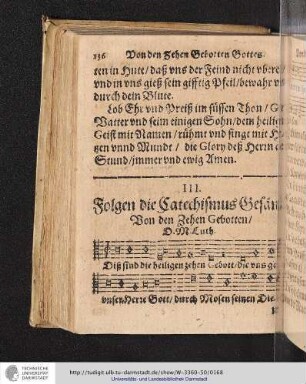 136 Von den Zehen Gebotten Gottes
ten in Hute / daß vns der Feind nicht vbere
vnd in vns gieß sein gifftig Pfeil / bewahr v
durch dein Blute.
Lob Ehr vnd Preiß im süssen Thon / G
Vatter vnd seim einigen Sohn / dem heilig
Geist mit Namen / rühmt vnd singt mit H
tzen vnnd Mundt / die Glory deß Herrn
Stund / jmmer vnd ewig Amen.
III.
Folgen die Catechismus Gesän
Von den Zehen Gebotten /
D. M. Luth.
Diß sind die heiligen zehen Gebott / die vns ge
vnser Herre Gott / durch Mosen seinen Die
TECHNISCHE
UNIVERSITÄT
DARMSTADT
http://tudigit.ulb.tu-darmstadt.de/show/W-3360-50/0168
Universitäts- und Landesbibliothek Darmstadt